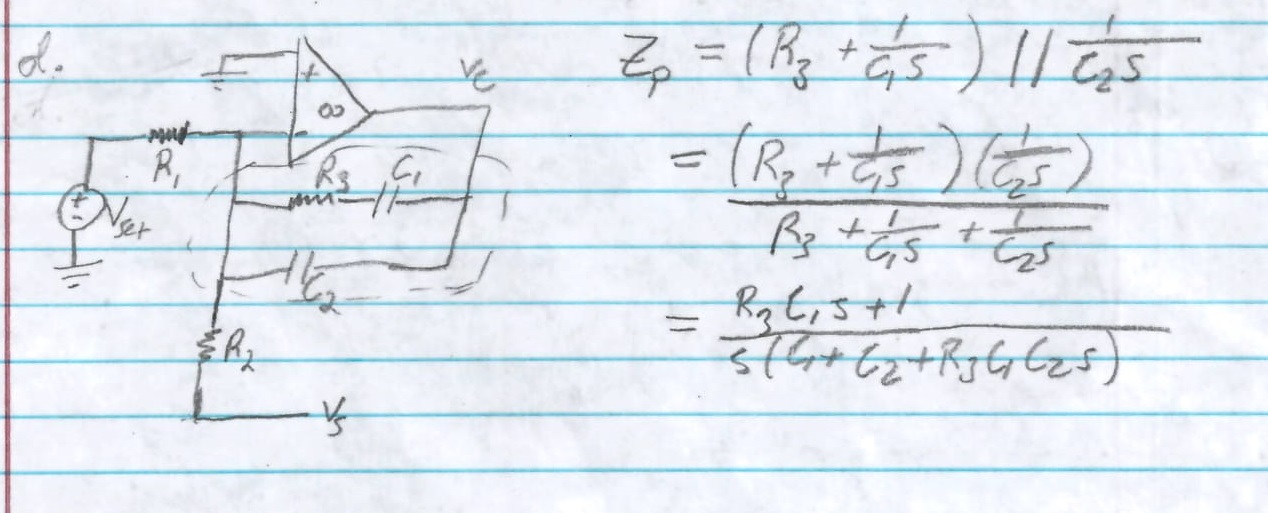 d.
+
∞
-
V_c
R_1
+
-
V_set
R_3 C_1
C_2
R_2
V_s
Z_p = (R_3 + 1/(C_1 s)) || 1/(C_2 s)
= (R_3 + 1/(C_1 s)) (1/(C_2 s)) / (R_3 + 1/(C_1 s) + 1/(C_2 s))
= (R_3 C_1 s + 1) / (s(C_1 + C_2 + R_3 C_1 C_2 s))